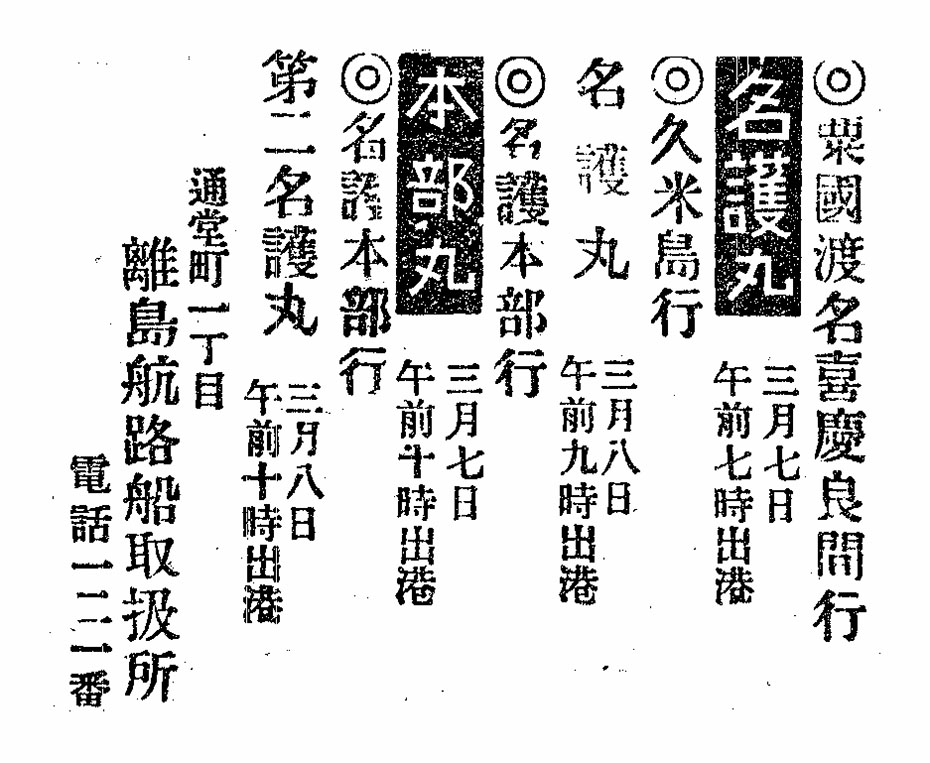 ◎粟國渡名喜慶良間行
名護丸
三月七日
午前七時出港
◎久米島行
名護丸
三月八日
午前九時出港
◎名護本部行
本部丸
三月七日
午前十時出港
◎名護本部行
第二名護丸
三月八日
午前十時出港
通堂町一丁目
離島航路船取扱所
電話一二二番